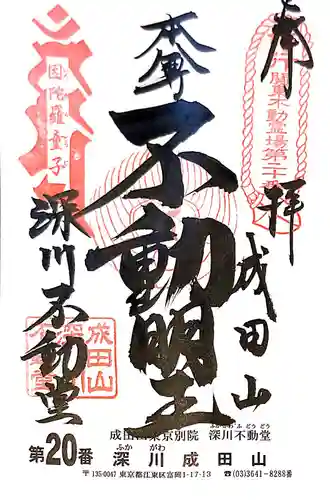 奉拝
成田山
本尊
不動明王
深川不動堂
関東不動霊場第二十番
因陀羅童子
成田山
成田山東京別院 深川不動堂
ふかがわ ふ どう どう
第20番 深川成田山
ふか がわ
〒135-0047 東京都江東区富岡1-17-13 ☎(03)3641-8288番